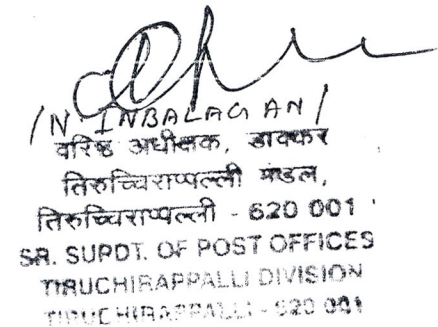 /N. INBALAGAN/
वरिष्ठ अधीक्षक, डाकघर
तिरुच्चिराप्पल्ली मंडल,
तिरुच्चिराप्पल्ली - 620 001
SR. SUPDT. OF POST OFFICES
TIRUCHIRAPPALLI DIVISION
TIRUCHIRAPPALLI - 620 001